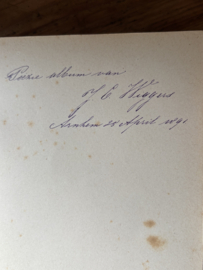 Poezie album van
J E Wiggers
Arnhem 28 April 1891